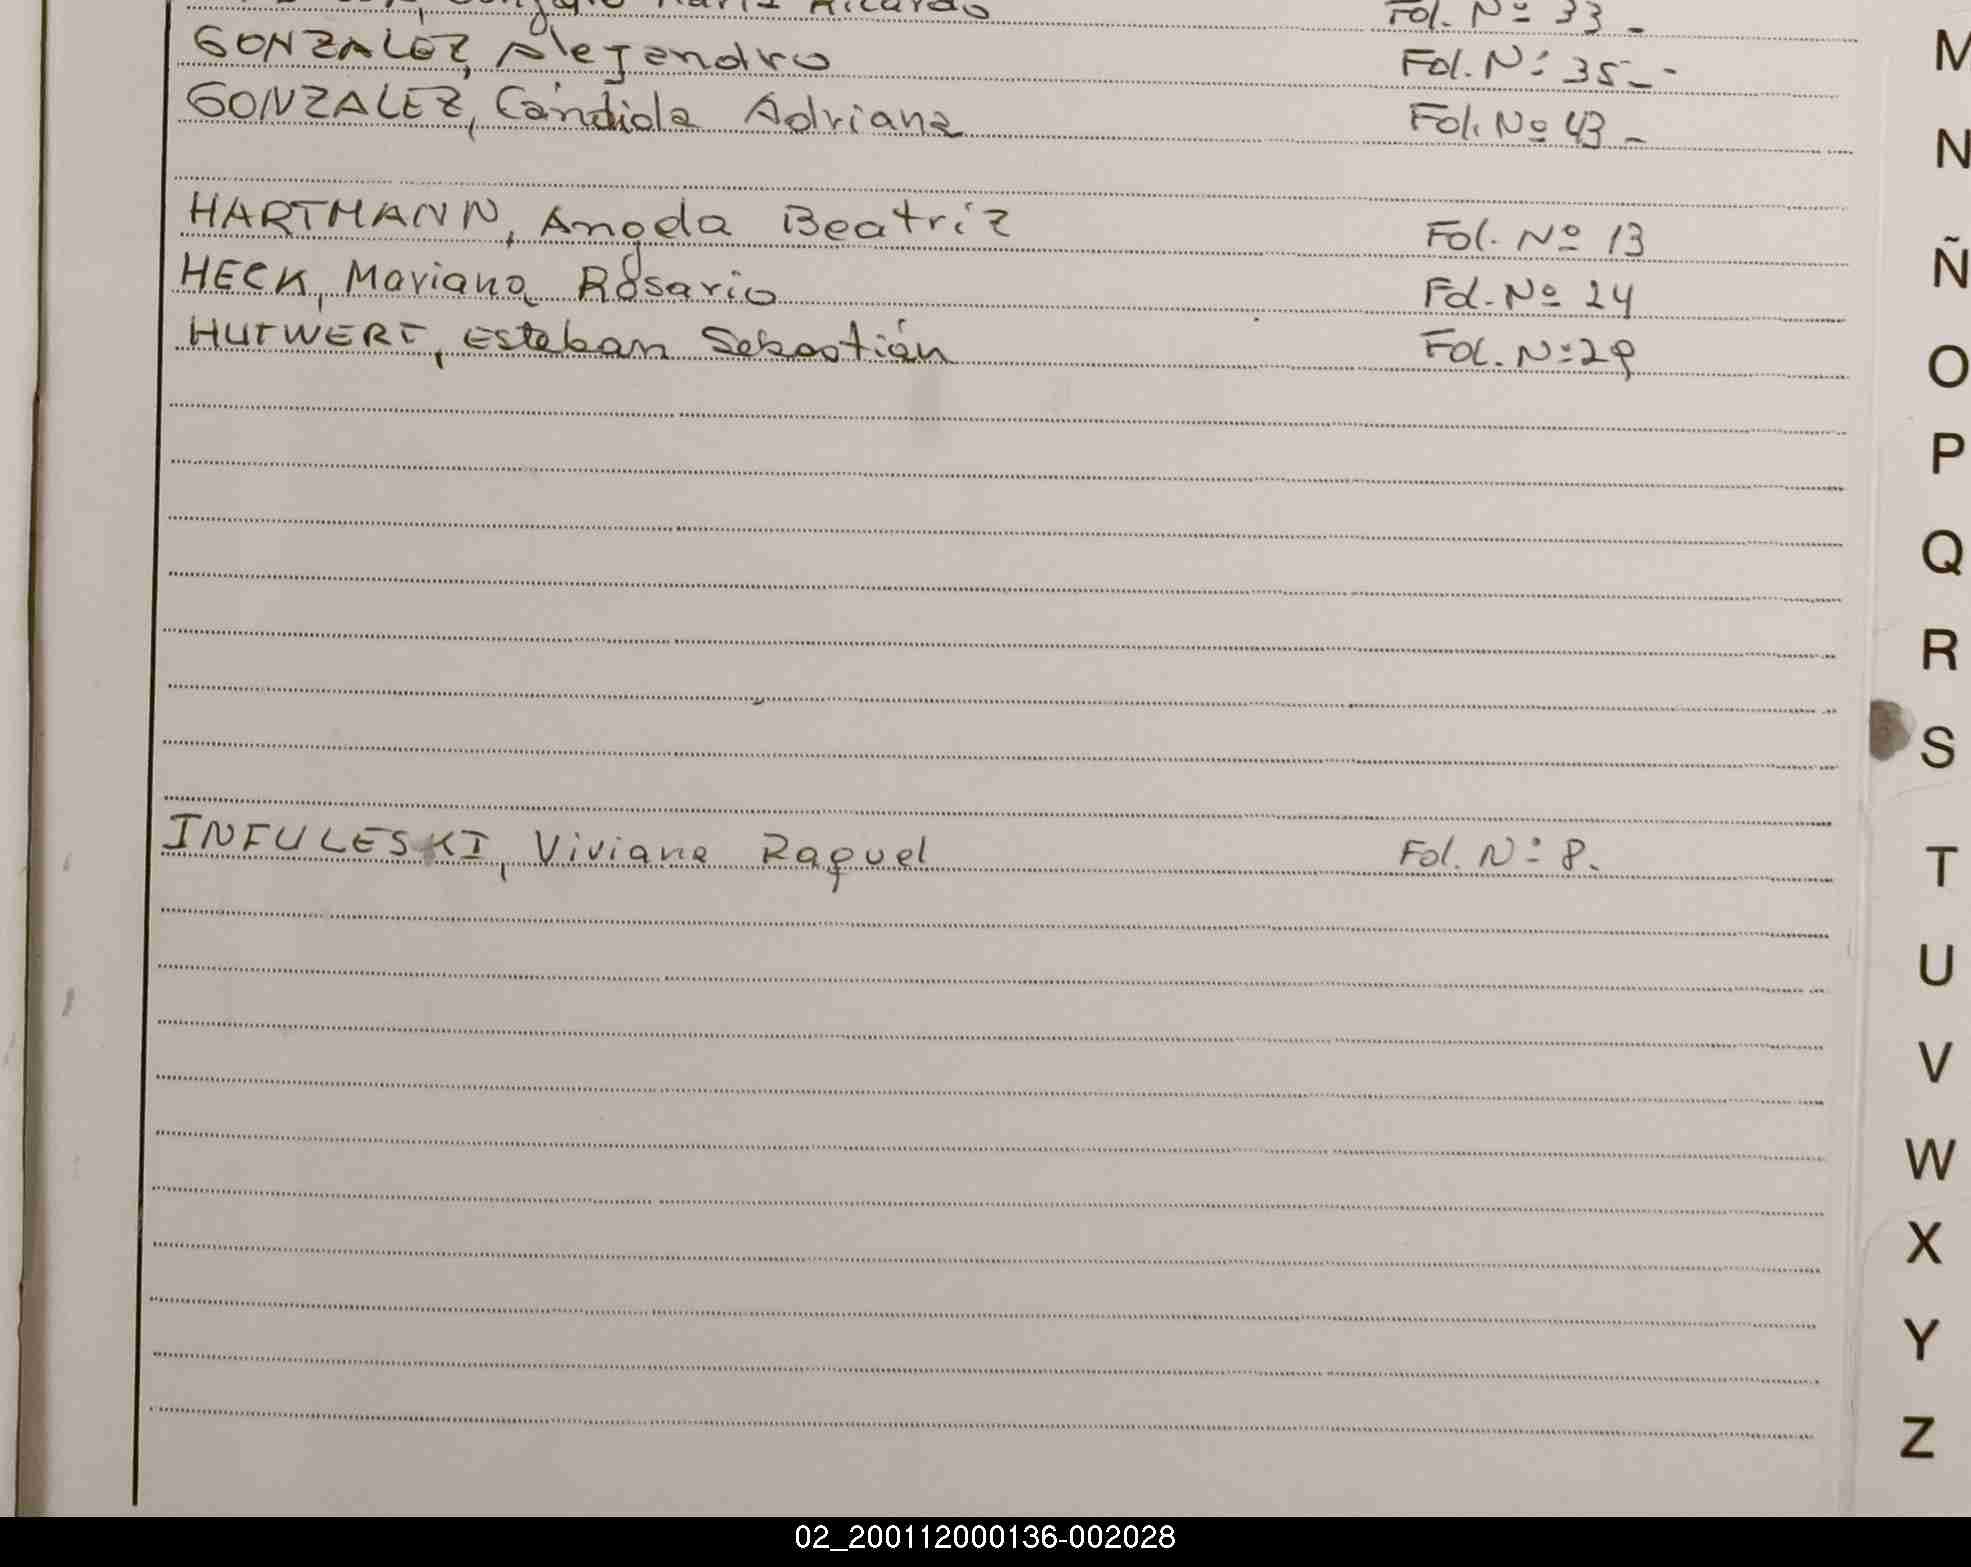 Ricardo Fol. Nº 33 -
GONZALEZ, Alejandro Fol. Nº 35 -
GONZALEZ, Cándida Adriana Fol. Nº 43 -
HARTMANN, Angela Beatriz Fol. Nº 13
HECK, Mariana Rosario Fol. Nº 24
HUTWERT, Esteban Sebastián Fol. Nº 29
INFULESKI, Viviana Raquel Fol. Nº 8.
M
N
Ñ
O
P
Q
R
S
T
U
V
W
X
Y
Z
02_200112000136-002028